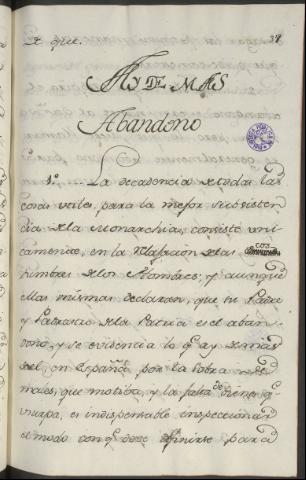 Lo que.
39
HAY DE MAS
Abandono
1º. La decadencia de todas las
cosas utiles, para la mejor subsisten
cia de la Monarchia, consiste uni
camente, en la relaxacion de las cos
tumbres de los Hombres; y aunque
ellas mismas declaran, que su Padre
y Patrocio de la Patria es el aban
dono, y se evidencia lo q. ay de mas
del, en España, por la sobra de
males, que motiba, y la falta de bienes q.
usurpa, es indispensable inspeccionar
el modo con q. deve definirse para